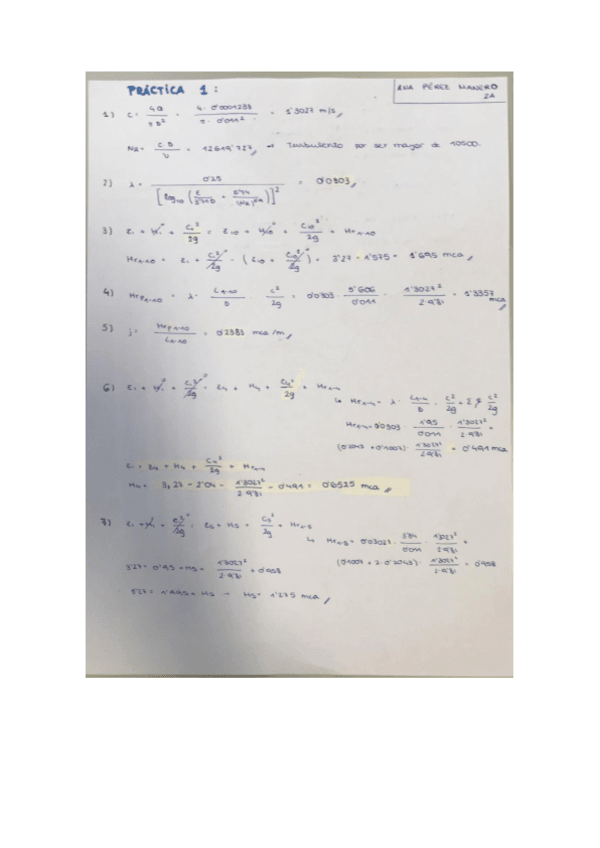 PRÁCTICA 1:
ANA PÉREZ MANERO
2A
1) C = 4Q / π D² = 4 · 0'0001238 / π · 0'011² = 1'3027 m/s
NR = C·D / ν = 12619'727 → Turbulento por ser mayor de 10500.
2) λ = 0'25 / [log10 (ε / 3'71D + 5'74 / (NR)^0'9)]² = 0'0303
3) z1 + H1 + C1² / 2g = z10 + H10 + C10² / 2g + Hr1-10
Hr1-10 = z1 + C1² / 2g - (z10 + C10² / 2g) = 3'27 - 1'575 = 1'695 mca
4) Hrp1-10 = λ · L1-10 / D · C² / 2g = 0'0303 · 5'606 / 0'011 · 1'3027² / 2·9'81 = 1'3357 mca
5) j = Hrp1-10 / L1-10 = 0'2383 mca/m
6) z1 + H1 + C1² / 2g = z4 + H4 + C4² / 2g + Hr1-4
↳ Hr1-4 = λ · L1-4 / D · C² / 2g + Σ ξ C² / 2g
Hr1-4 = 0'0303 · 1'95 / 0'011 · 1'3027² / 2·9'81 +
(0'2043 + 0'1007) · 1'3027² / 2·9'81 = 0'491 mca
z1 = z4 + H4 + C4² / 2g + Hr1-4
H4 = 3,27 - 2'04 - 1'3027² / 2·9'81 - 0'491 = 0'6525 mca
7) z1 + H1 + C1² / 2g = z5 + H5 + C5² / 2g + Hr1-5
↳ Hr1-5 = 0'03027 · 3'84 / 0'011 · 1'3027² / 2·9'81 +
(0'1007 + 2·0'2043) · 1'3027² / 2·9'81 = 0'958
3'27 = 0'95 + H5 + 1'3027² / 2·9'81 + 0'958
3'27 = 1'995 + H5 → H5 = 1'275 mca